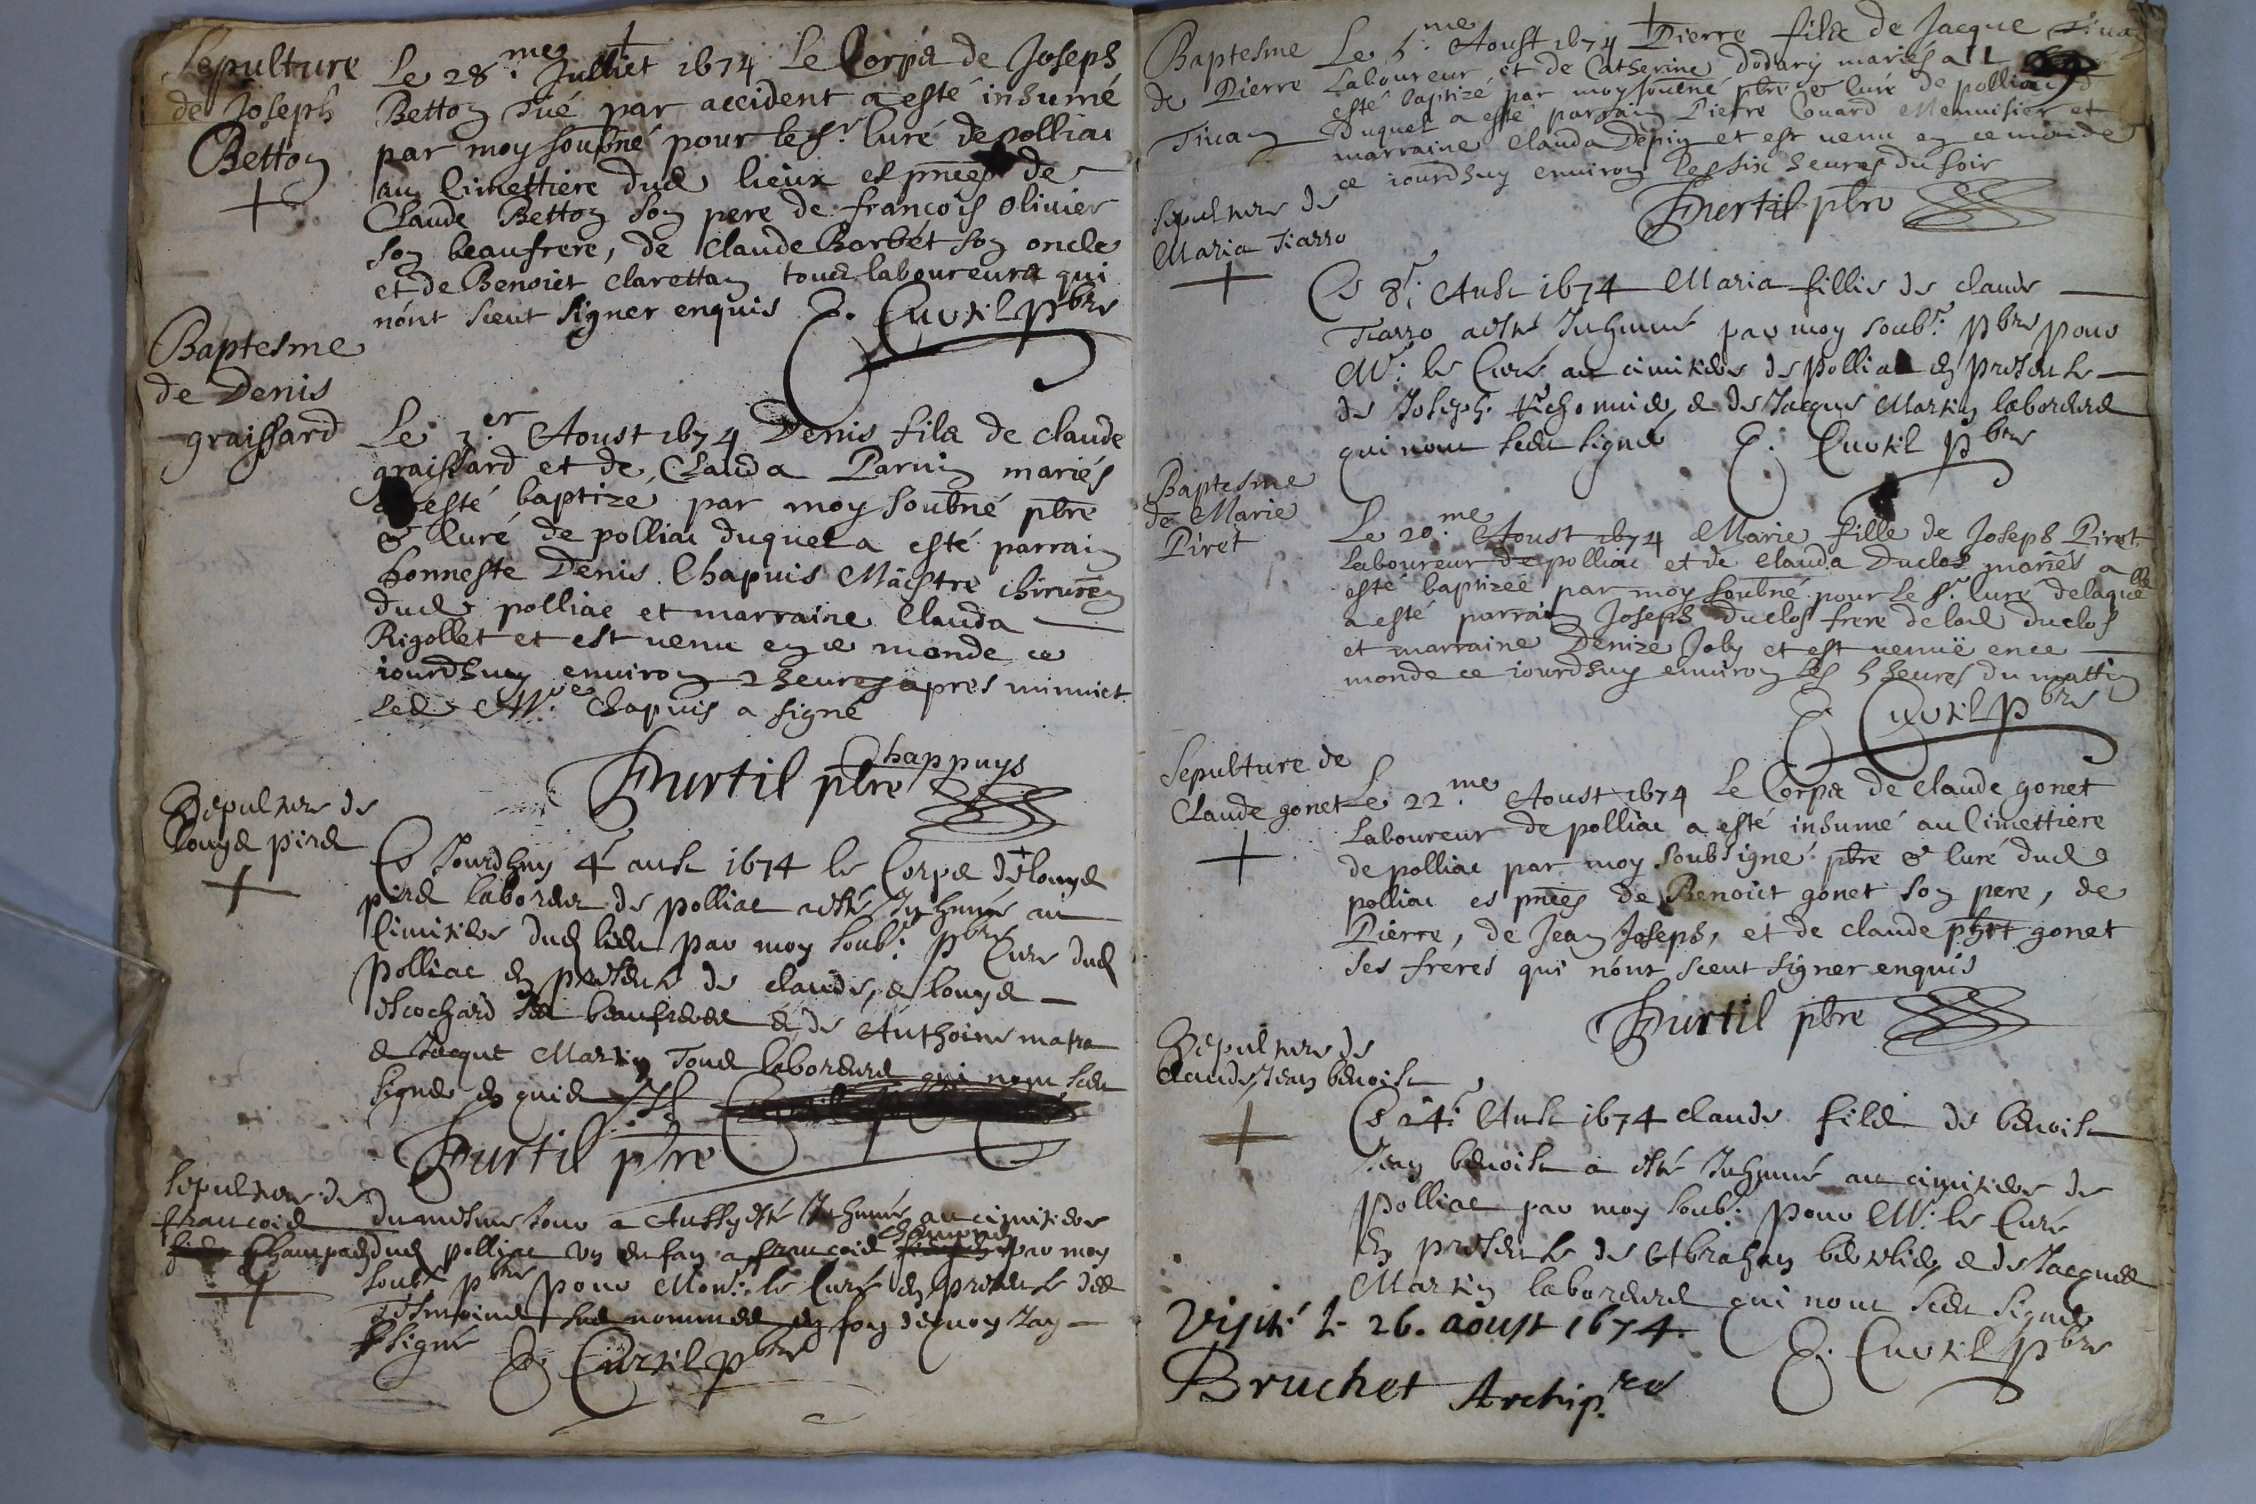 Sepulture
de Joseph
Betton
Le 28.me Julliet 1674 Le Corps de Joseph
Betton tué par accident a esté inhumé
par moy soubné pour le Sr. Curé de polliac
au Cimettiere dud lieux es pnces de
Claude Betton son pere de françois olivier
son beaufrere, de Claude Borbet son oncle
et de Benoict Clarettan tous laboureurs qui
n'ont sceut signer enquis E. Curtil pbre
Baptesme
de Denis
graissard
Le 3.er Aoust 1674 Denis fils de claude
graissard et de Clauda Parvin mariés
a esté baptizé par moy soubné pbre
& Curé de polliac duquel a esté parrain
honneste Denis Chapuis Maistre chirurgn
dud polliac et marraine Clauda
Rigollet et est venu en ce monde ce
iourdhuy environ 2 heures apres minuict
Led Mre. Chapuis a signé
Chappuys
Furtil pbre
Sepulture de
Louys piret
Ce Jourdhuy 4e aust 1674 le Corps de Louys
labores de polliac a esté Inhumé au
Cimitiere dud lieu par moy soubs. pbre Curé dud
polliac en presence de claude, & Louys
beaufreres & de Anthoine matra
& Jacque Martin Tous laboreurs qui nont sceu
signer enquis
Furtil pbre
Sepulture de
francois
Champ
Du mesme Jour a Aussy esté Inhumé au cimitiere
dud polliac un enfan a francois par moy
soubs. pbre pour Monr. le Curé en presence des
Tesmoins sus nommes en foy dequoy Jay
signé E. Curtil pbre
Baptesme
de Pierre
Tivan
Le 5.me Aoust 1674 Pierre fils de Jacque
Laboureur et de Catherine Dodary mariés a
esté baptizé par moy soubné pbre & Curé de polliac
Duquel a esté parrain Pierre Couard Menuisier et
marraine Clauda Depin et est venu en ce monde
ce iourdhuy environ les six heures du soir
Furtil pbre
Sepulture de
Maria Tiarro
Ce 8e. Aust 1674 Maria fillie de claude
Tiarro a esté Inhumé par moy soubs. pbre pour
Mr. le Curé au cimitiere de polliac en presence
de Joseph & de Jacque Martin laboreurs
qui nont sceu signer E. Curtil pbre
Baptesme
de Marie
Piret
Le 20.me Aoust 1674 Marie fille de Joseph Piret
Laboureur de polliac et de Clauda Duclos mariés a
esté baptizée par moy soubné pour le Sr. Curé de laqulle
a esté parrain Joseph duclos frere de lad duclos
et marraine Denize Joly et est venuë en ce
monde ce iourdhuy environ les 5 heures du mattin
E. Curtil pbre
Sepulture de
Claude gonet
Le 22.me Aoust 1674 Le Corps de Claude gonet
Laboureur de polliac a esté inhumé au Cimettiere
de polliac par moy soubsigné pbre & Curé dud
polliac es pnces de Benoict gonet son pere, de
Pierre, de Jean Joseph, et de claude phrt gonet
ses freres qui n'ont sceut signer enquis
Furtil pbre
Sepulture de
Claude Jean benoist
Ce 24e Aust 1674 claude fils de benoist
Jean benoist a esté Inhumé au cimitiere de
polliac par moy soubs. pour Mr. le Curé
en presence de Abraham & de Jacques
Martin laboreurs qui nont sceu signer
E. Curtil pbre
Visité le 26. aoust 1674.
Bruchet Archip.re